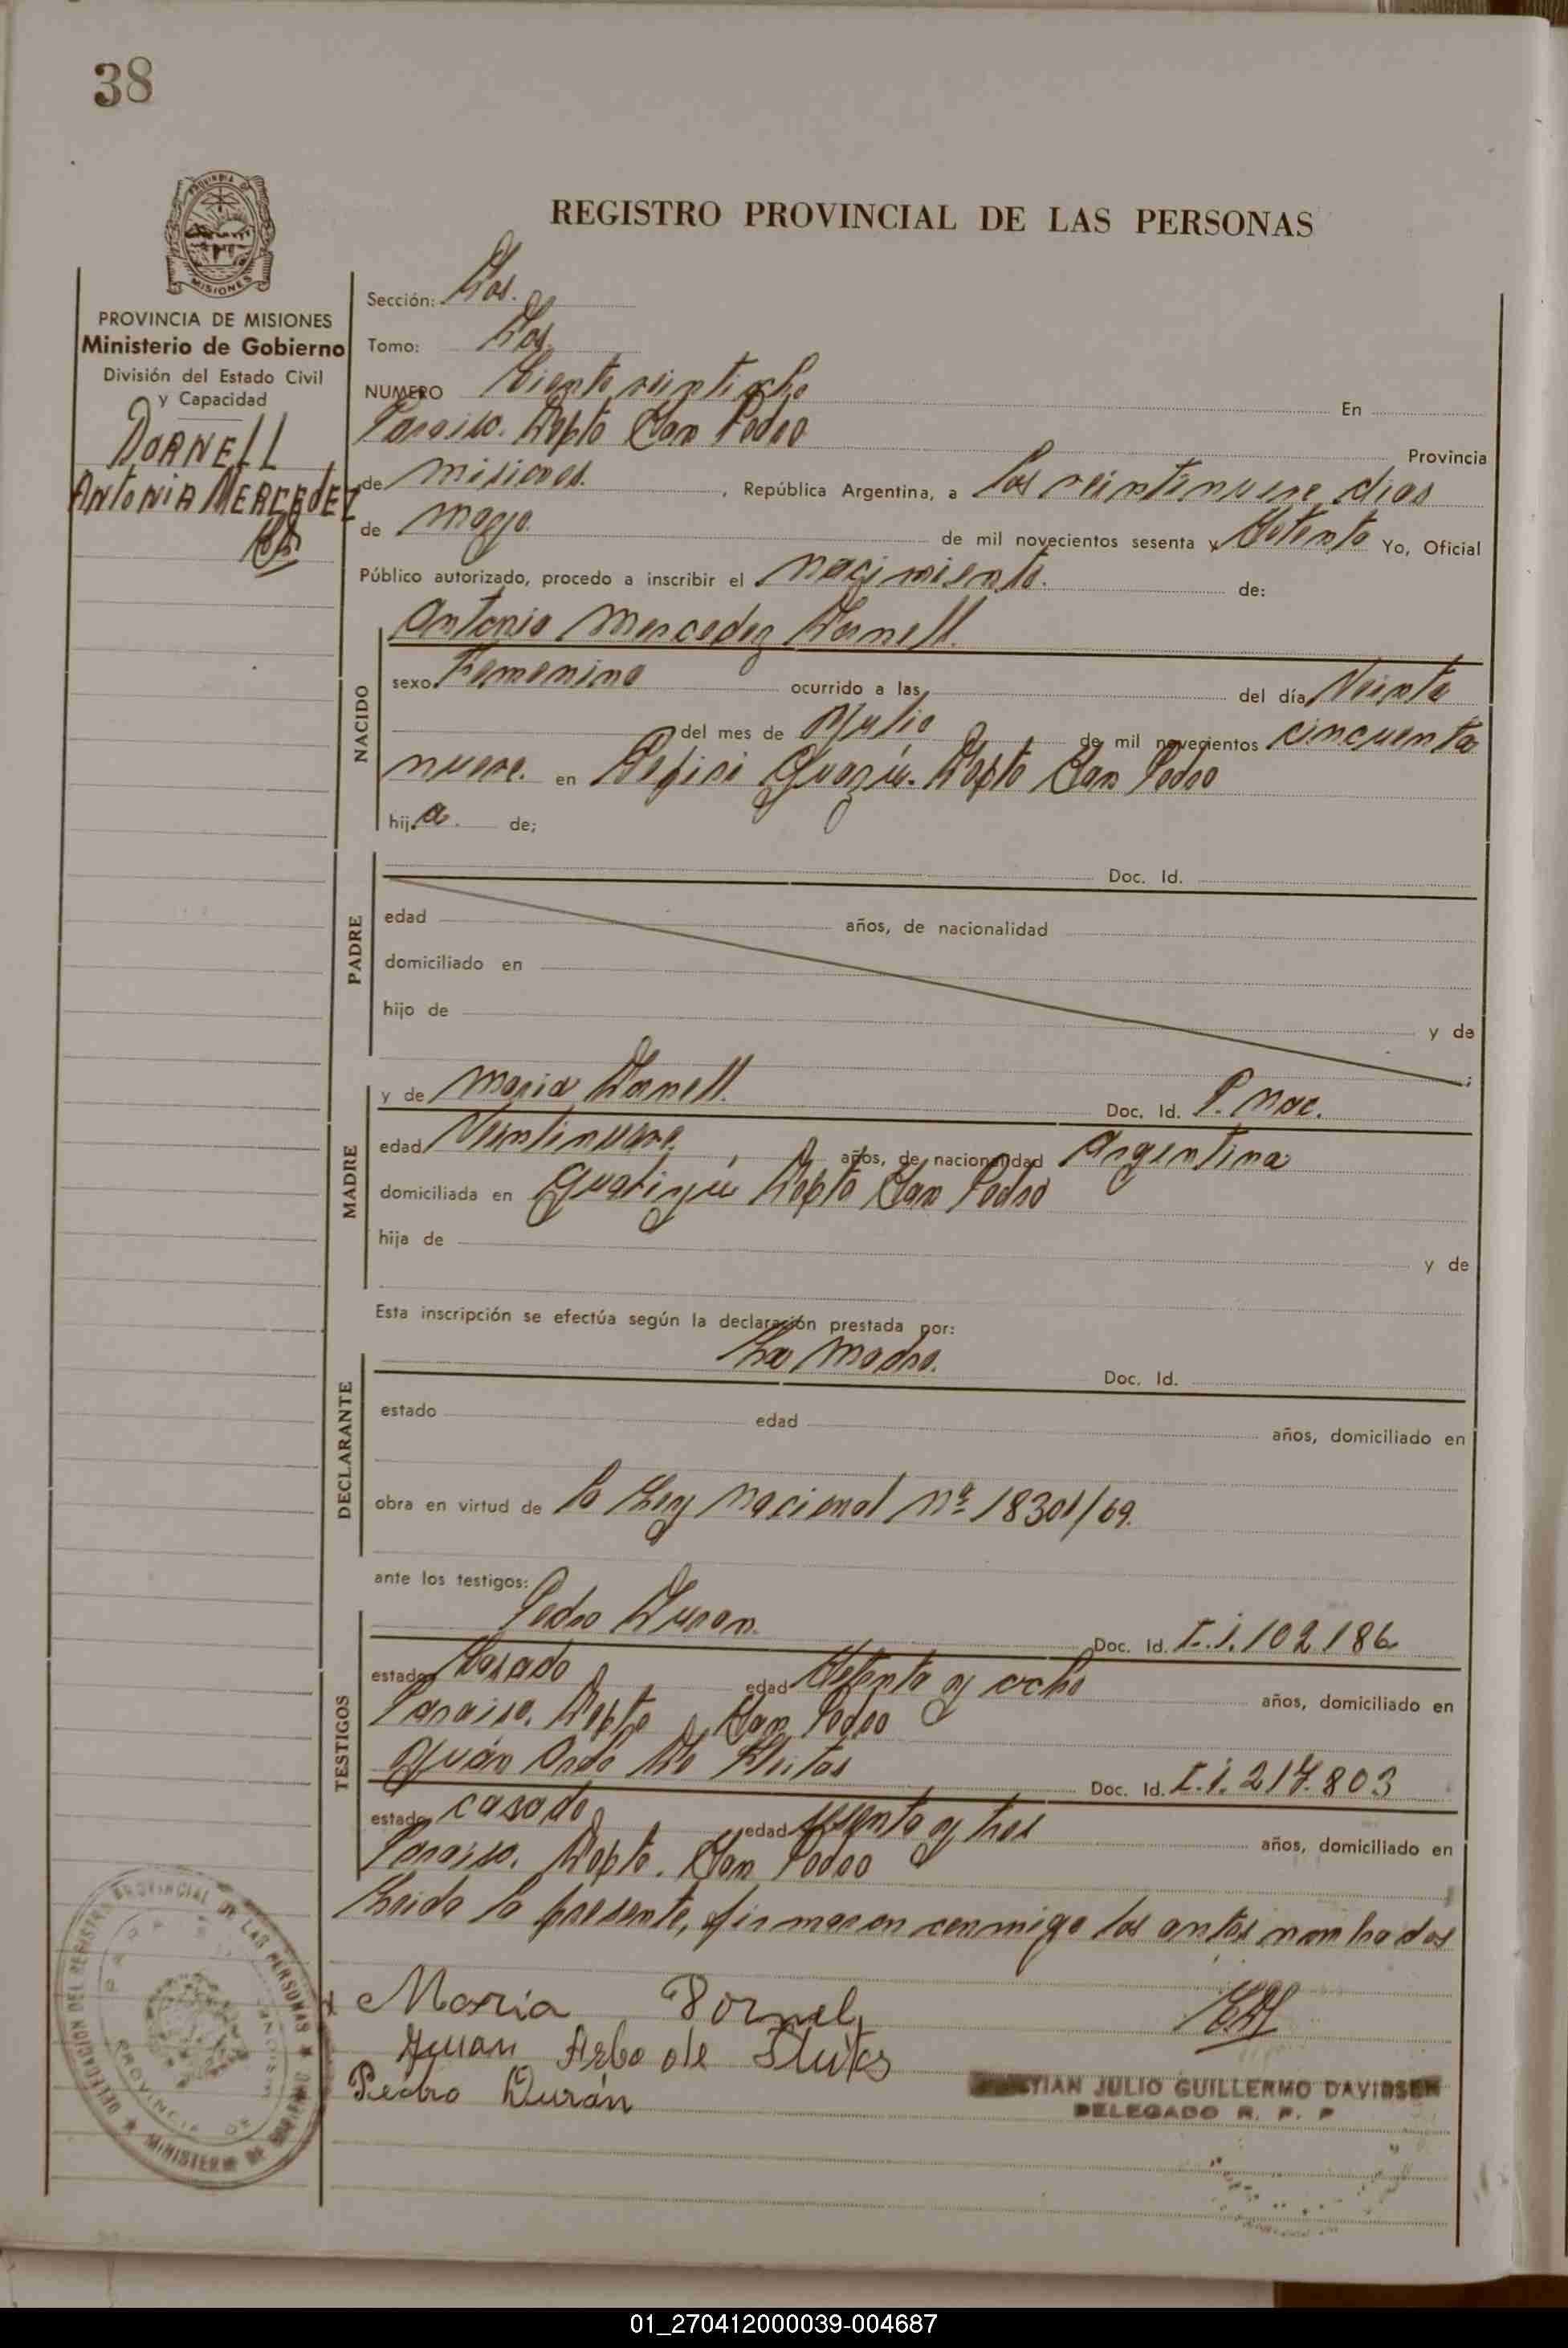 38
PROVINCIA DE
MISIONES
REGISTRO PROVINCIAL DE LAS PERSONAS
PROVINCIA DE MISIONES
Ministerio de Gobierno
División del Estado Civil
y Capacidad
DORNELL
ANTONIA MERCEDEZ
Sección: Dos.
Tomo: Dos
NUMERO Ciento veintiocho En
Paraiso. Depto San Pedro Provincia
de misiones. , República Argentina, a los veintinueve dias
de mayo. de mil novecientos sesenta y Setenta Yo, Oficial
Público autorizado, procedo a inscribir el nacimiento. de:
NACIDO
Antonia Mercedez Dornell.
sexo Femenino ocurrido a las del día Veinte
del mes de Julio de mil novecientos cincuenta
nueve. en Pepiri Guazú. Depto San Pedro
hij a. de;
PADRE
Doc. Id.
edad años, de nacionalidad
domiciliado en
hijo de y de
;
MADRE
y de Maria Dornell. Doc. Id. P. Nac.
edad Veintinueve. años, de nacionalidad Argentina
domiciliada en Depto San Pedro
hija de y de
Esta inscripción se efectúa según la declaración prestada por:
DECLARANTE
La Madre. Doc. Id.
estado edad años, domiciliado en
obra en virtud de la Ley Nacional Nº 18301/69.
ante los testigos:
TESTIGOS
Pedro Duran. Doc. Id. L.i.102186
estado Casado edad Setenta y ocho años, domiciliado en
Paraiso. Depto San Pedro
Juán De Doc. Id. L.i.217.803
estado casado edad sesenta y tres años, domiciliado en
Paraiso. Depto. San Pedro
Leida la presente, firmaron conmigo los antes nombrados
x Maria Dornel
Juan de
Pedro Durán
JULIO GUILLERMO DAVIDSEN
DELEGADO R. P. P
DELEGACION DEL REGISTRO PROVINCIAL DE LAS PERSONAS
MINISTERIO DE
PROVINCIA DE
01_270412000039-004687